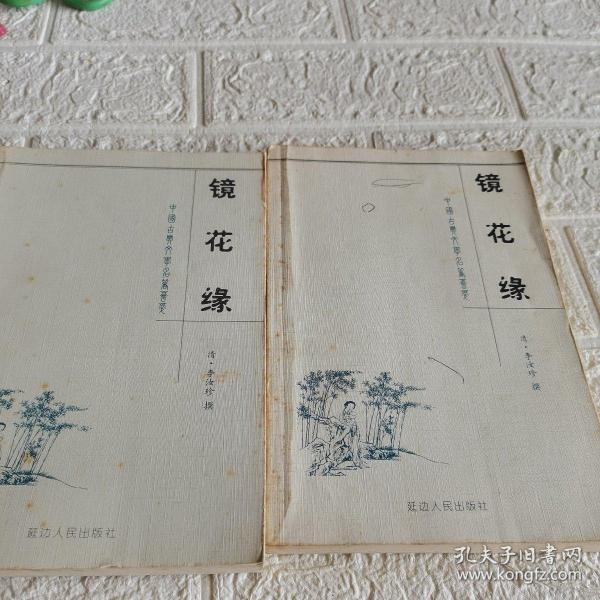 镜花缘
中國古典文學名篇薈萃
清·李汝珍 撰
延边人民出版社
镜花缘
中國古典文學名篇薈萃
清·李汝珍 撰
延边人民出版社
孔夫子旧书网
www.kongfz.com